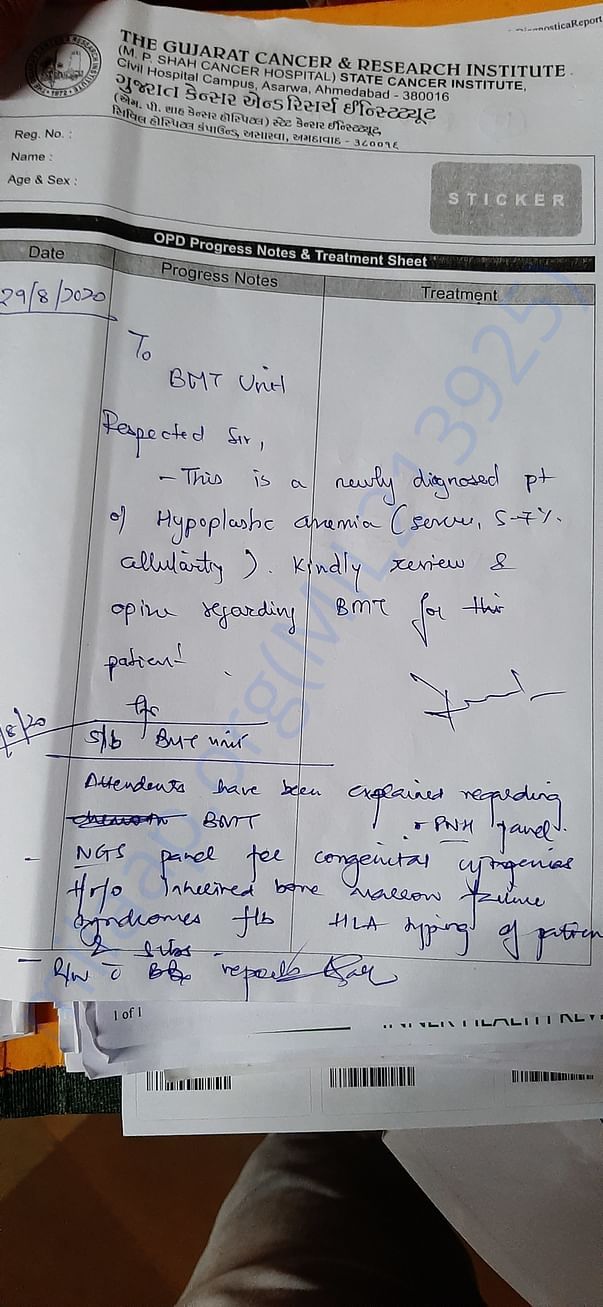 DiagnosticaReport
THE GUJARAT CANCER & RESEARCH INSTITUTE
(M. P. SHAH CANCER HOSPITAL) STATE CANCER INSTITUTE,
Civil Hospital Campus, Asarwa, Ahmedabad - 380016
ગુજરાત કેન્સર એન્ડ રિસર્ચ ઈન્સ્ટિટ્યૂટ
(એમ. પી. શાહ કેન્સર હોસ્પિટલ) સ્ટેટ કેન્સર ઈન્સ્ટિટ્યૂટ,
સિવિલ હોસ્પિટલ કંપાઉન્ડ, અસારવા, અમદાવાદ - ૩૮૦૦૧૬
1972
Reg. No. :
Name :
Age & Sex :
STICKER
OPD Progress Notes & Treatment Sheet
Date Progress Notes Treatment
29/8/2020
To
BMT Unit
Respected Sir,
- This is a newly diagnosed pt
of Hypoplastic anemia (severe, 5-7%
cellularity). Kindly review &
opine regarding BMT for this
patient.
/8/20
S/b BMT unit
Attendents have been explained regarding
BMT - PNH panel.
- NGS panel for congenital
inherited bone marrow failure
syndromes HLA typing of patient
& sibs
- R/w c reports
milaap.org(MIL2139257)
1 of 1